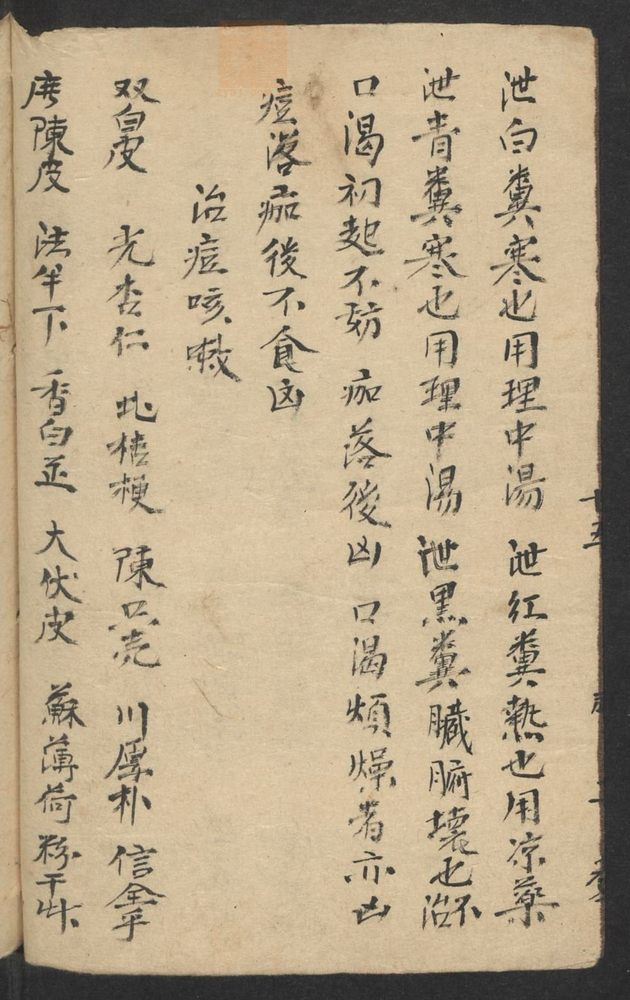 泄白糞寒也用理中湯 泄紅糞熱也用凉藥
泄青糞寒也用理中湯 泄黑糞臟腑壞也不治
口渴初起不妨 痂落後凶 口渴煩燥者亦凶
痘落痂後不食凶
治痘咳嗽
双白皮 光杏仁 北桔梗 陳只壳 川厚朴 信金平
廣陳皮 法半下 香白芷 大伏皮 蘇薄荷 粉干艸
十五